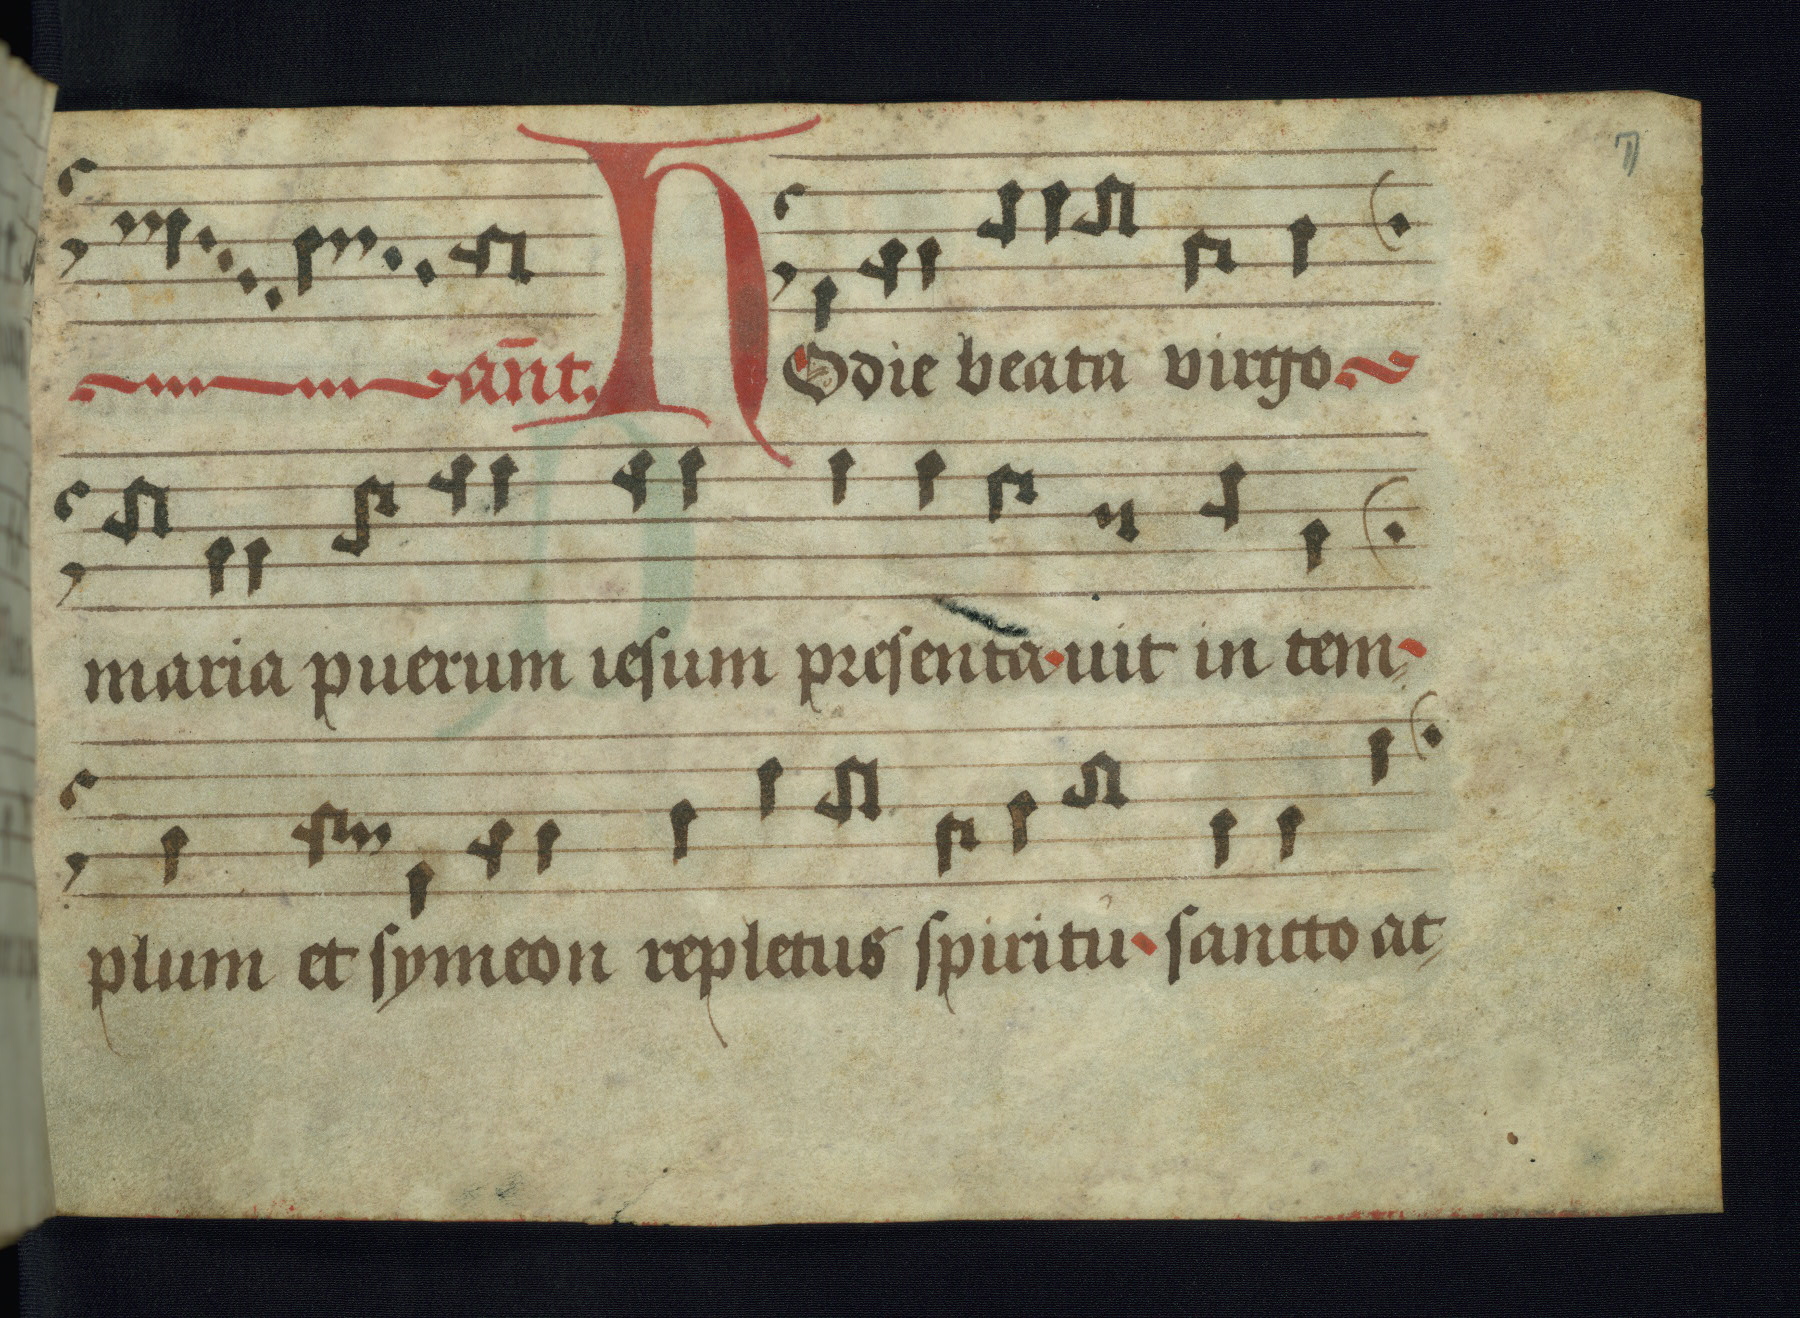 7
añt. HOdie beata virgo
maria puerum iesum presenta uit in tem
plum et symeon repletus spiritu sancto at